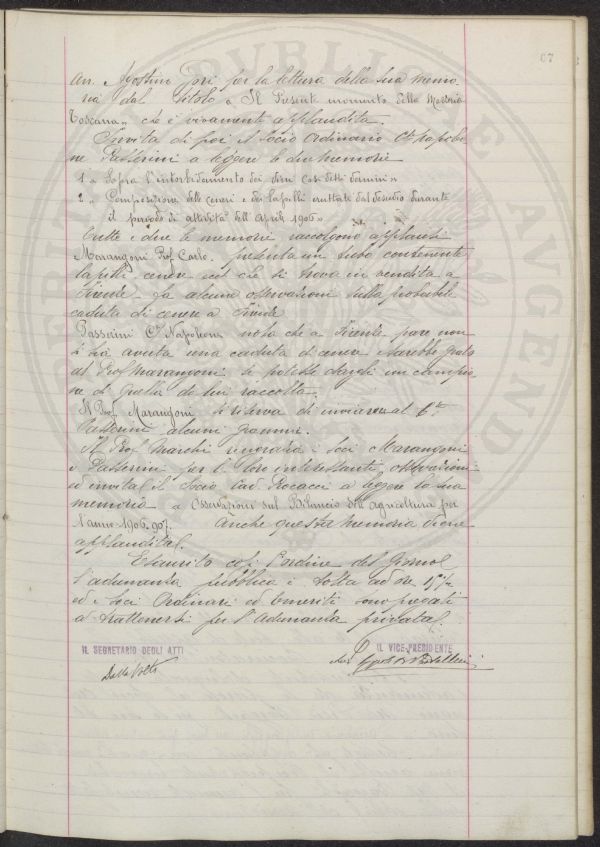 67
avv. Agostino Gori per la lettura della sua memo
ria dal titolo « Il Presente momento della Mezzeria
Toscana „ che è vivamente applaudita.
Invita di poi il Socio Ordinario Cte Napoleo
ne Passerini a leggere le due memorie
1° « Sopra l'intorbidamento dei vini così detti
2° « Composizione delle ceneri e dei lapilli eruttate dal Vesuvio durante
il periodo di attività dell'Aprile 1906 »
Tutte e due le memorie raccolgono applausi
Marangoni Prof. Carlo. presenta un tubo contenente
lapilli, cenere ed ciò si trova in vendita a
Firenze. fa alcune osservazioni sulla probabile
caduta di cenere a Firenze
Passerini Cte Napoleone nota che a Firenze pare non
si sia avuta una caduta di cenere e sarebbe grato
al Prof Marangoni se potesse dargli un campio
ne di quella da lui raccolta.
Il Prof. Marangoni si riserva di inviare al Cte
Passerini alcuni grammi.
Il Prof Marchi ringrazia i Soci Marangoni
e Passerini per le loro interessanti osservazioni
ed invita il Socio Cav. Rocacci a leggere la sua
memoria « Osservazioni sul Bilancio dell'agricoltura per
l'anno 1906-907. Anche questa memoria viene
applaudita.
Esaurito così l'ordine del giorno
l'adunanza pubblica è tolta ad ore 15½
ed i Soci Ordinari ed Emeriti sono pregati
a trattenersi per l'adunanza privata.
IL SEGRETARIO DEGLI ATTI
IL VICE-PRESIDENTE
Dalla Volta